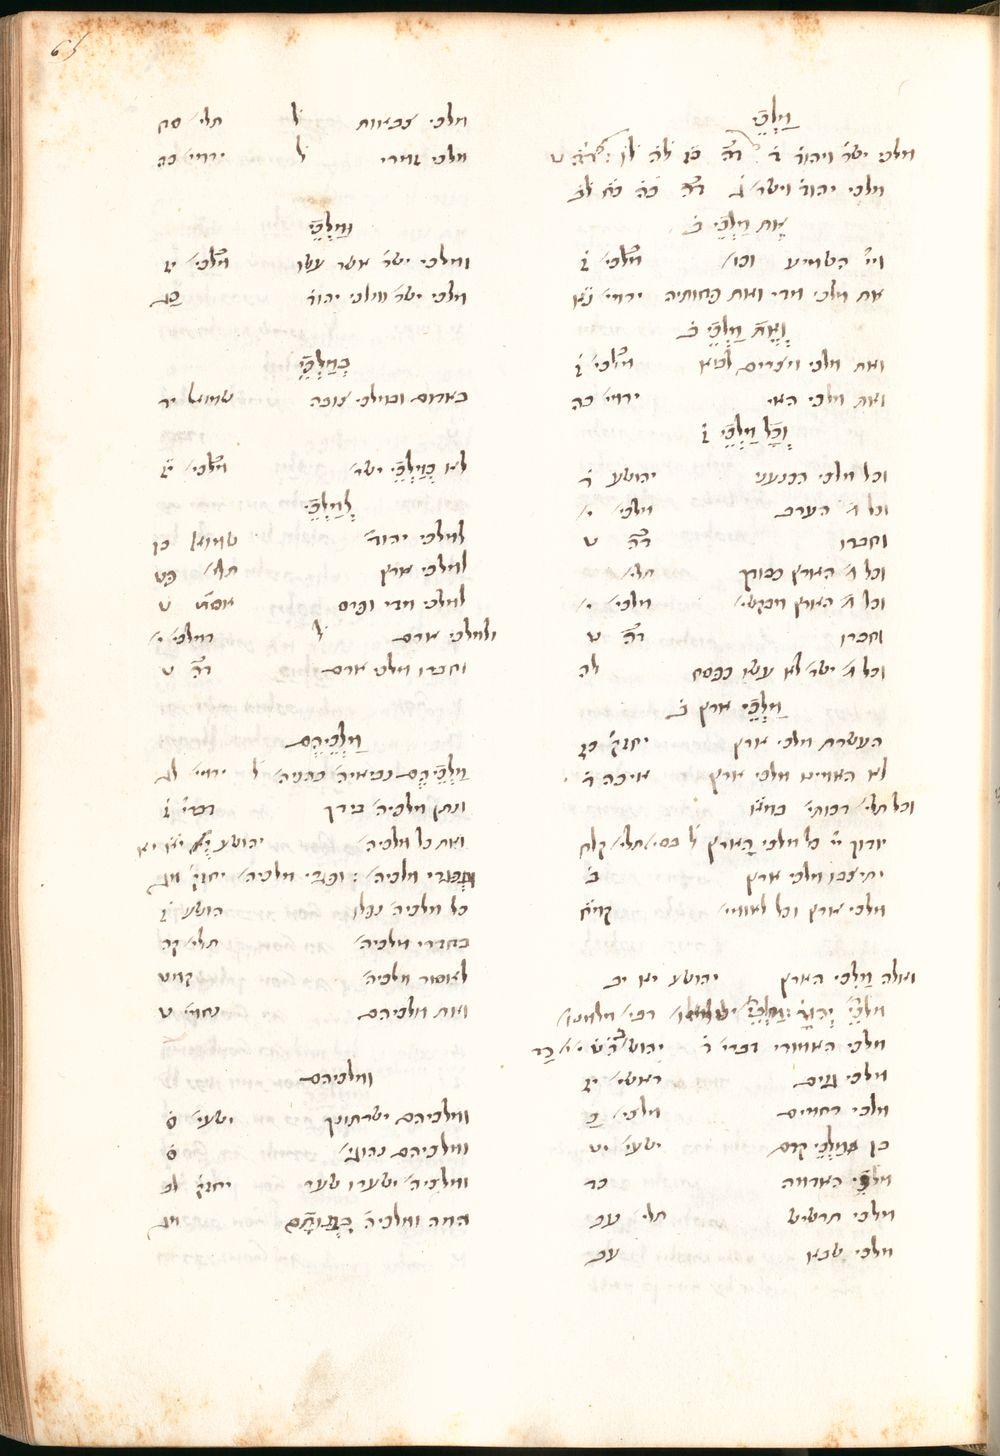 מַלְכֵּי
מלכי ישר׳ ויהוד׳ ד׳ ד״ה כז לה לו
מלכי יהוד׳ וישר׳ ד״ה כה כח לב
אֶת מַלְכֵּי ב
ויי׳ השמיע וכו׳ מ״לכי׳ ז
את מלכי מדי ואת פחותיה ירמי׳ נא
וְאֶת מַלְכֵּי ב
ואת מלכי מצרים לבוא מ״לכי׳ ז
ואת מלכי האי ירמי׳ כה
וְכָל מַלְכֵּי ז
וכל מלכי הכנעני יהושע ה
וכל מ׳ הערב מלכי׳ י׳
וחברו ד״ה ט
וכל מ׳ הארץ כבודך תלי׳
וכל מ׳ הארץ מבקשי׳ מלכי׳ י׳
וחברו ד״ה ט
וכל מ׳ ישר׳ לא עשו כפסח לה
מַלְכֵּי ארץ ב
העשרת מלכי ארץ יחזק׳ כז
לא האמינו מלכי ארץ איכה ד
וכל תלי׳ דכותי׳ במ״א
יודוך יי׳ כל מלכי הארץ ל׳ בסי׳ תלי׳ קלח
יתיצבו מלכי ארץ ב
מלכי ארץ וכל לאומי׳ קמח
ואלה מַלְכֵי הארץ יהושע יא יב
מלכי האמורי דברי׳ ד יהוש׳
מלכי גוים ראשי׳ יז
מלכי רחמים מלכי׳ כ
בן מַלְכֵי קדם ישעי׳ יט
מלכי הארמה כד
מלכי תרשיש תלי׳ עב
מלכי שבא עב
מלכי צבאות ל׳ תלי׳ סח
מלכי זמרי ל׳ ירמי׳ כה
וּמַלְכֵּי
ומלכי ישר׳ אשר עשו מ״לכי׳ יז
מלכי ישר׳ ומלכי יהוד׳
בְּמַלְכֵּי
באדום ובמלכי צובה שמואל יד
לא כְמַלְכֵּי ישר׳ מ״לכי׳ יז
לְמַלְכֵּי
למלכי יהוד׳ שמואל כז
למלכי ארץ תלי׳ פט
למלכי מדי ופרס אסת׳ ט
ולמלכי ארם ל׳ דמלכי׳ י׳
וחברו מלכי ארם ד״ה ט
מַלְכֵיהֶם
מַלְכֵיהֶם נביאיה׳ כהניה׳ ל׳ ירמי׳ לב
ונתן מלכיה׳ בידך דברי׳ ז
ואת כל מלכיה׳ יהושע י׳ יא
ובפגרי מלכיה׳ : ופגרי מלכיה׳ יחזק׳ מג
כל מלכיה׳ נפלו הושע ז
בחדרי מלכיה׳ תלי׳ קה
לאסור מלכיה׳ קמט
ואת מלכיהם נחמי׳ ט
ומלכיהם
ומלכיהם ישרתונך ישעי׳ ס
ומלכיהם נהוגי׳ ס
ומלכיה׳ ישערו שער יחזק׳ לב
המה ומלכיה׳ מג